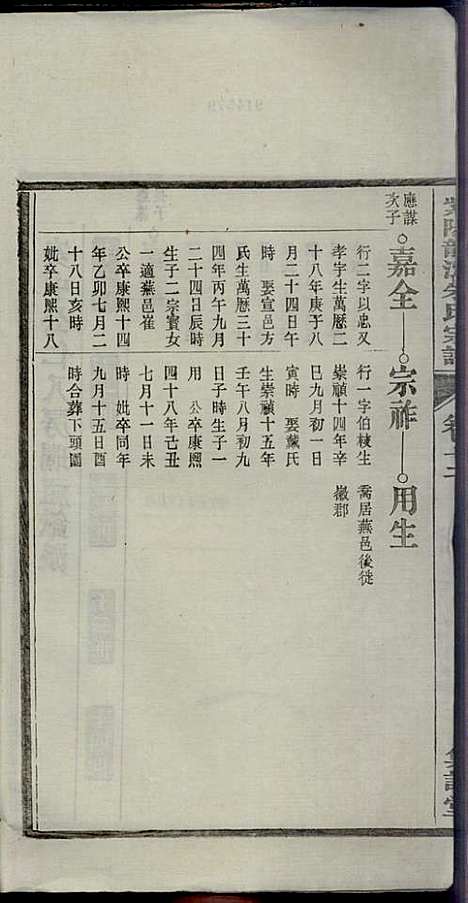 氏宗譜
卷十二
應謀
次子
嘉全
宗祚
用生
行二字以忠又
孝字生萬曆二
十八年庚子八
月二十四日午
時 娶宣邑方
氏生萬曆三十
四年丙午九月
二十四日辰時
生子二宗賓女
一適蕪邑崔
公卒康熙十四
年乙卯七月二
十八日亥時
妣卒康熙十八
行一字伯稜生
崇禎十四年辛
巳九月初一日
寅時 娶戴氏
生崇禎十五年
壬午八月初九
日子時生子一
用 公卒康熙
四十八年己丑
七月十一日未
時 妣卒同年
九月十五日酉
時合葬下頭園
喬居蕪邑後徙
徽郡